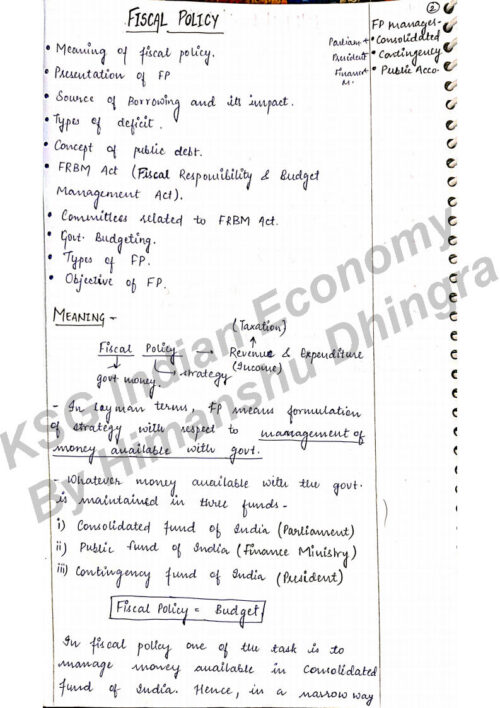 2
FISCAL POLICY
FP manager-
Parliam + • Consolidated
President • Contingency
Finance M. • Public Acco
• Meaning of fiscal policy.
• Presentation of FP
• Source of Borrowing and its impact.
• Types of deficit.
• Concept of public debt.
• FRBM Act (Fiscal Responsibility & Budget
Management Act).
• Committees related to FRBM Act.
• Govt. Budgeting.
• Types of FP.
• Objective of FP.
MEANING -
(Taxation)
Fiscal Policy → Revenue & Expenditure
(Income)
govt money. strategy
- In layman terms, FP means formulation
of strategy with respect to management of
money available with govt.
- Whatever money available with the govt.
is maintained in three funds -
i) Consolidated fund of India (Parliament)
ii) Public fund of India (Finance Ministry)
iii) Contingency fund of India (President)
Fiscal Policy = Budget
In fiscal policy one of the task is to
manage money available in consolidated
fund of India. Hence, in a narrow way
KSG Indian Economy
By Himanshu Dhingra